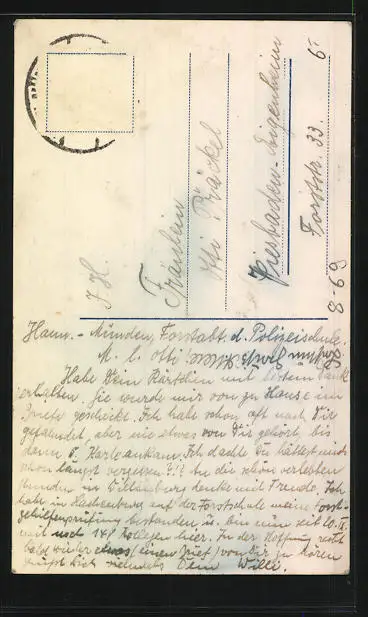 I. H.
Fräulein
Otti Bräckel
Wiesbaden-Eigenheim
Forststr. 33
8.69
Hann.-Münden, Forstabt. d. Polizeischule.
M. l. Otti!
Habe Dein Kärtchen mit bestem Dank
erhalten. Sie wurde mir von zu Hause im
Briefe geschickt. Ich habe schon oft nach Dir
gefahndet, aber nie etwas von Dir gehört, bis
dann d. Karte ankam. Ich dachte Du hättest mich
schon längst vergessen?!? An die schön verlebten
Stunden in denke mit Freude. Ich
habe in auf der Forstschule meine Forst-
gehilfenprüfung bestanden u. bin nun seit 20. IX.
mit noch 148 Kollegen hier. In der Hoffnung recht
bald wieder etwas (einen Brief) von Dir zu hören
grüßt Dich vielmals Dein Willi.